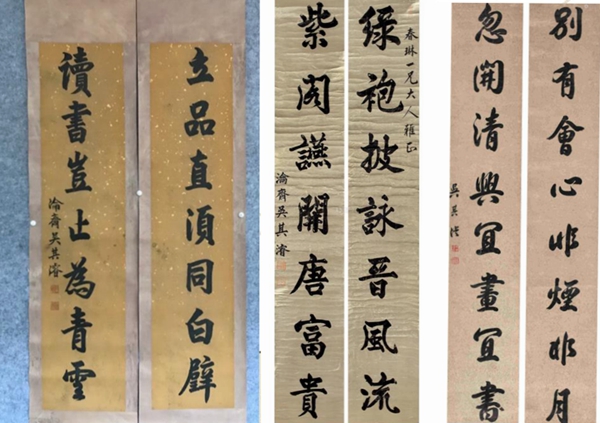 立品直湏同白璧
讀書豈止為青雲
瀹齋吳其濬
春琳一兄大人雅正
綠袍披詠晉風流
紫閣讌開唐富貴
瀹齋吳其濬
別有會心非煙非月
忽開清興宜畫宜書
吳其濬